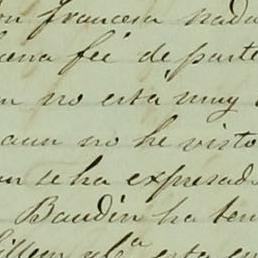 francesa nada
buena fée de parte
no está muy
aun no he visto
se ha expresado
Baudin ha ten
esta en